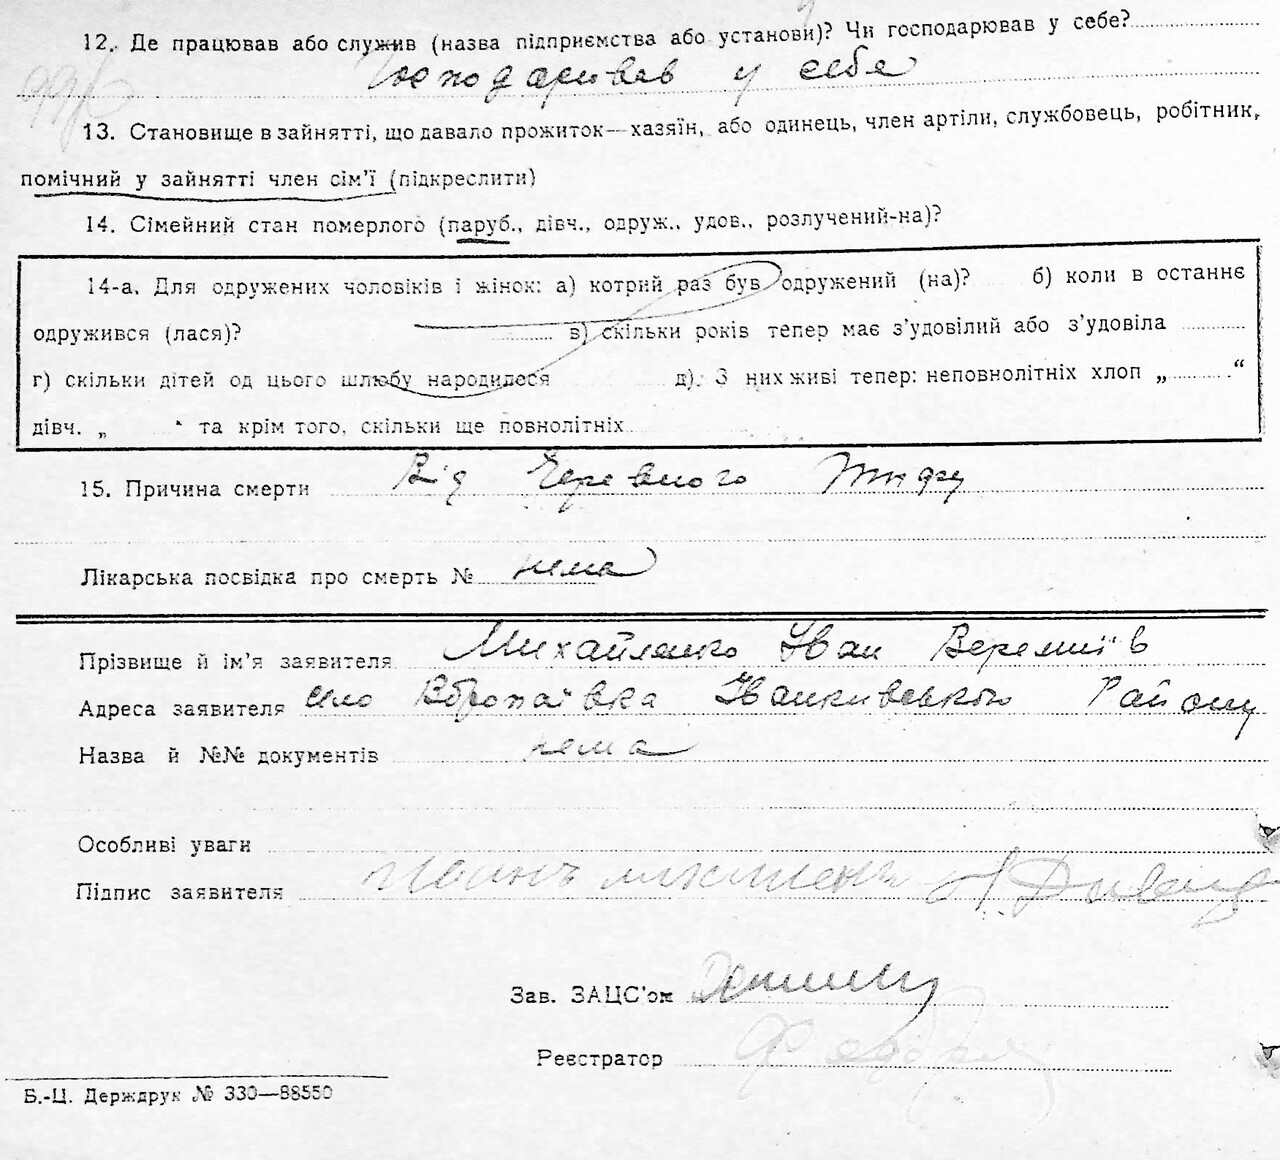 12. Де працював або служив (назва підприємства або установи)? Чи господарював у себе?
у себе
13. Становище в зайнятті, що давало прожиток—хазяїн, або одинець, член артіли, службовець, робітник,
помічний у зайнятті член сім'ї (підкреслити)
14. Сімейний стан померлого (паруб., дівч., одруж., удов., розлучений-на)?
14-а. Для одружених чоловіків і жінок: а) котрий раз був одружений (на)? б) коли в останнє
одружився (лася)? в) скільки років тепер має з'удовілий або з'удовіла
г) скільки дітей од цього шлюбу народилося д). З них живі тепер: неповнолітніх хлоп „ “
дівч. „ “ та крім того, скільки ще повнолітніх
15. Причина смерти Від Черевного Тифу
Лікарська посвідка про смерть № нема
Прізвище й ім'я заявителя Михайленко Іван Веремиїв
Адреса заявителя село Іванкивського Району
Назва й №№ документів нема
Особливі уваги
Підпис заявителя
Зав. ЗАЦС'ом
Реєстратор
Б.-Ц. Держдрук № 330—88550